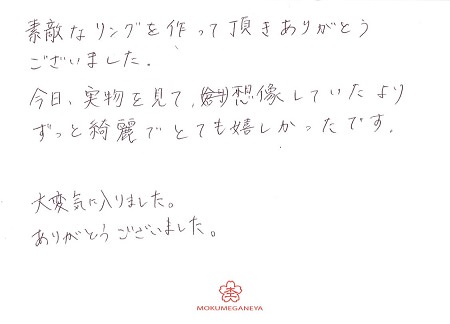 素敵なリングを作って頂きありがとう
ございました.
今日、実物を見て、想像していたより
ずっと綺麗でとても嬉しかったです.
大変気に入りました。
ありがとうございました。
MOKUMEGANEYA